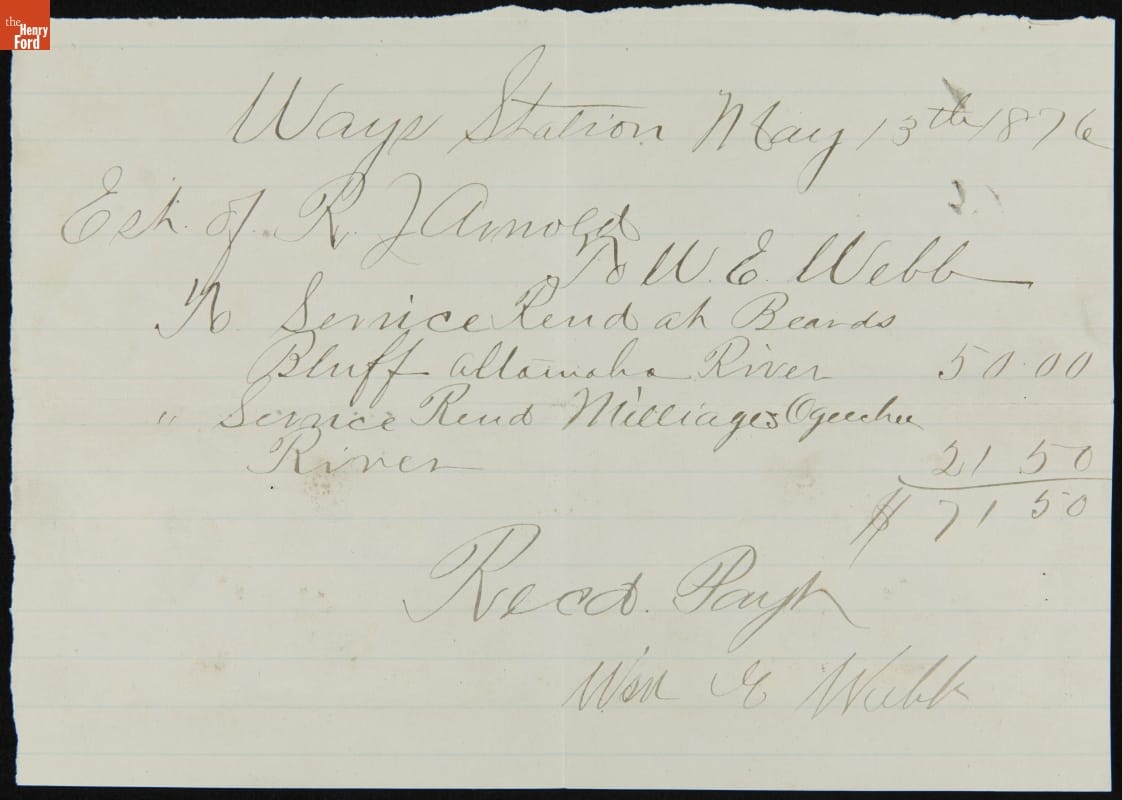 the
Henry
Ford
Ways Station May 13th 1876
Est. of R. J Arnold
To W. E. Webb
To Service Rend at Beards
Bluff Altamaha River 50.00
" Service Rend Milliages Ogeechee
River 21 50
$ 71 50
Recd. Payt
Wm E Webb